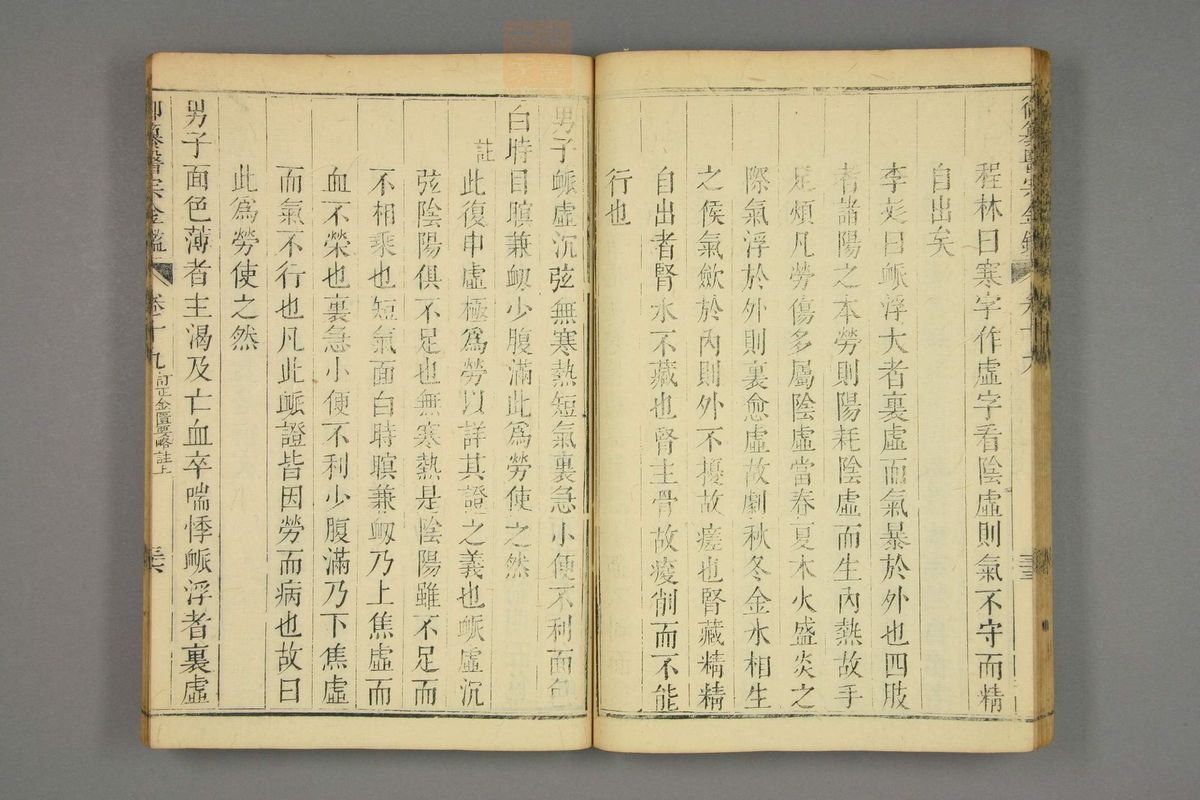 御纂醫宗金鑑 卷十九
程林曰寒字作虛字看陰虛則氣不守而精
自出矣
李彣曰衇浮大者裏虛而氣暴於外也四肢
者諸陽之本勞則陽耗陰虛而生內熱故手
足煩凡勞傷多屬陰虛當春夏木火盛炎之
際氣浮於外則裏愈虛故劇秋冬金水相生
之候氣斂於內則外不擾故瘥也腎藏精精
自出者腎水不藏也腎主骨故痠削而不能
行也
男子衇虛沉弦無寒熱短氣裏急小便不利面色
白時目瞑兼衂少腹滿此為勞使之然
註
此復申虛極為勞以詳其證之義也衇虛沉
弦陰陽俱不足也無寒熱是陰陽雖不足而
不相乘也短氣面白時瞑兼衂乃上焦虛而
血不榮也裏急小便不利少腹滿乃下焦虛
而氣不行也凡此衇證皆因勞而病也故曰
此為勞使之然
男子面色薄者主渴及亡血卒喘悸衇浮者裏虛
御纂醫宗金鑑 卷十九 訂正金匱要略註上 三六